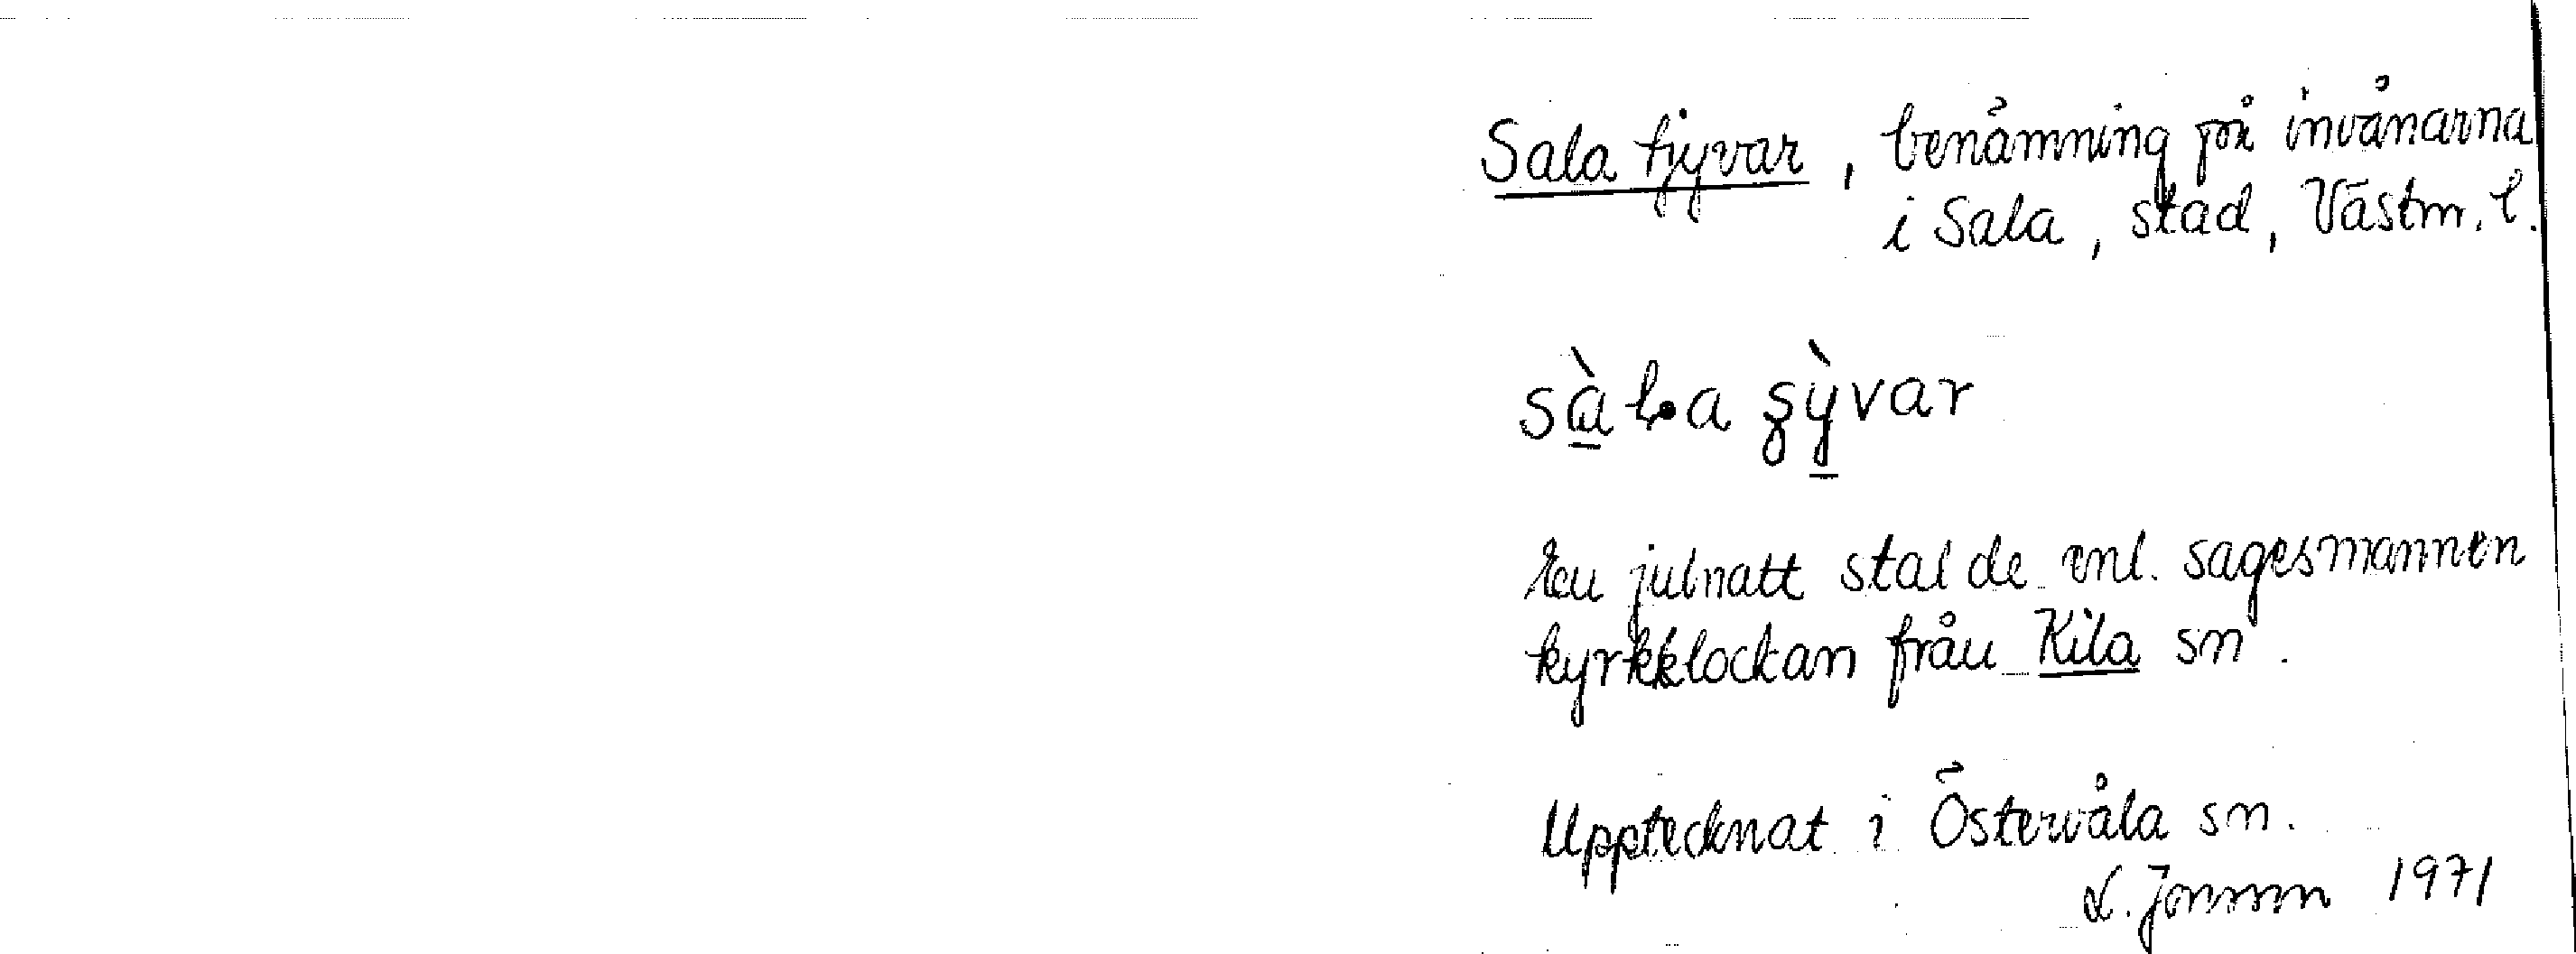 Sala tjyvar, benämning på invånarna
i Sala, stad, Västm. l.
sàl·a şỳvar
En julnatt stal de enl. sagesmannen
kyrkklockan från Kila sn.
Upptecknat i Östervåla sn.
L. Jonsson 1971